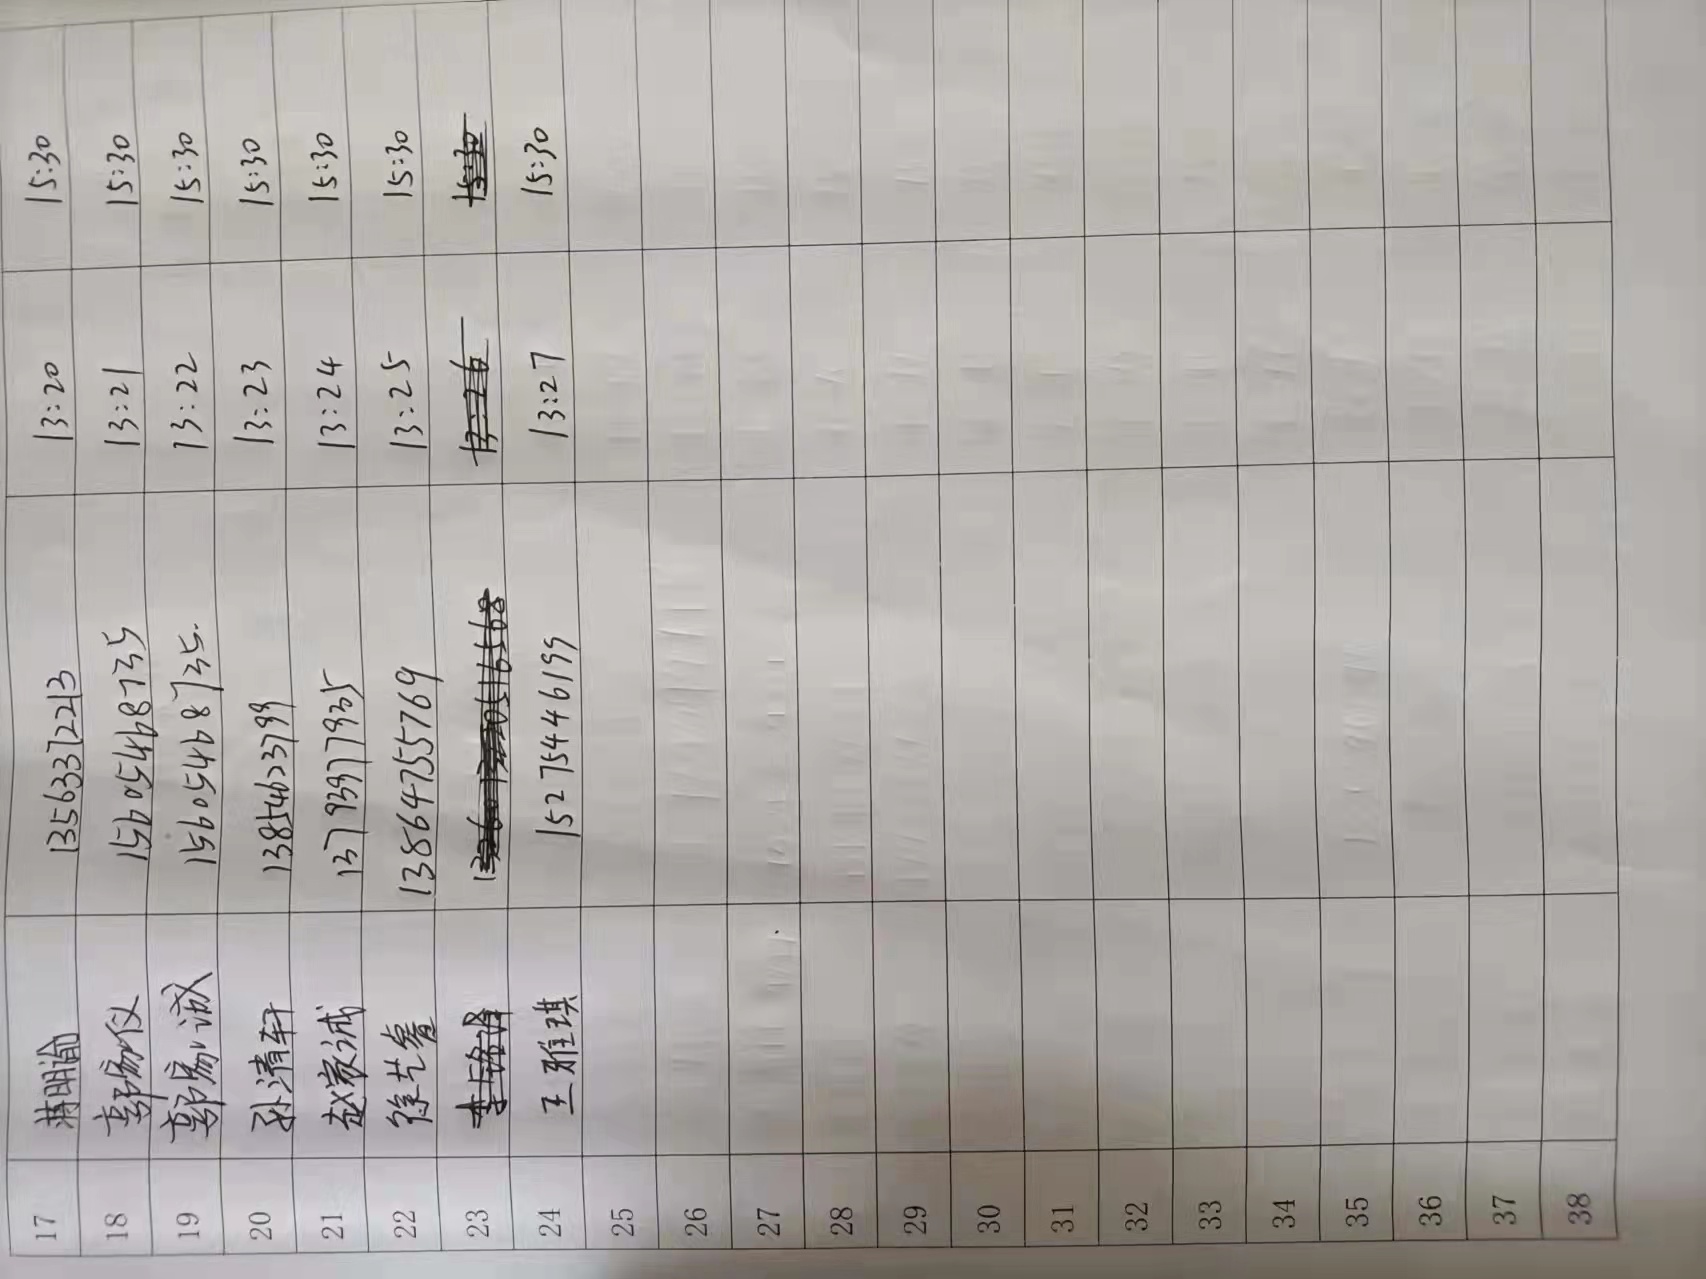 17 蒋明瑜 13563372213 13:20 15:30
18 郭家仪 15605468735 13:21 15:30
19 郭家诚 15605468735. 13:22 15:30
20 孙清轩 13854623799 13:23 15:30
21 赵家诚 13793977935 13:24 15:30
22 徐艺睿 13864755769 13:25 15:30
23 13:26 15:30
24 王雅琪 15275446199 13:27 15:30
25
26
27
28
29
30
31
32
33
34
35
36
37
38